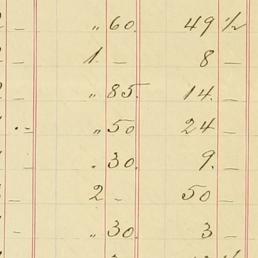 – „ 60. 49 ½
– 1 – 8 –
– „ 85. 14. –
. – „ 50 24 –
– . 30. 9. –
– 2 – 50
– „ 30. 3 –